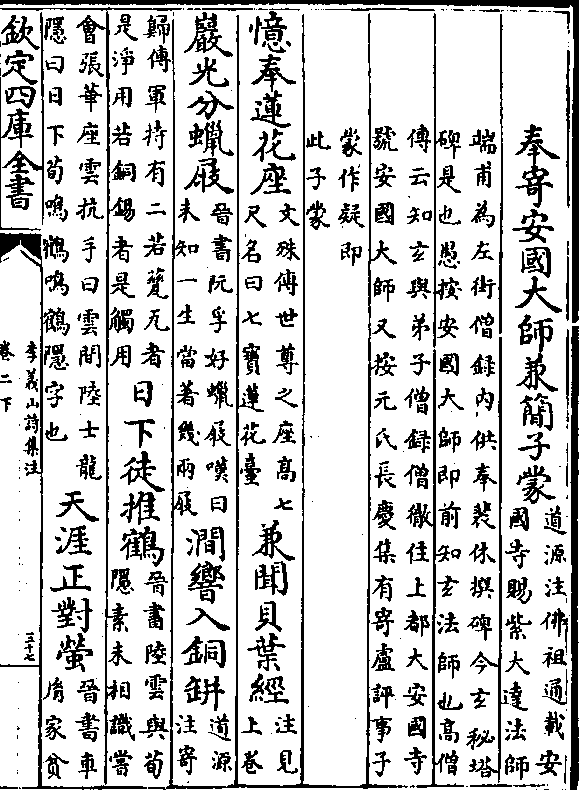 奉寄安國大師兼簡子蒙
道源注佛祖通載安
國寺賜紫大達法師
端甫為左街僧録内供奉裴休撰碑今玄秘塔
碑是也愚按安國大師即前知玄法師也髙僧
傳云知玄與弟子僧録僧徹住上都大安國寺
號安國大師又按元氏長慶集有寄盧評事子
蒙作疑即
此子蒙
憶奉蓮花座
文殊傳世尊之座髙七
尺名曰七寶蓮花臺
兼聞貝葉經
注見
上巻
巖光分蠟屐
晉書阮孚好蠟屐嘆曰
未知一生當著幾兩屐
澗響入銅缾
道源
注寄
歸傳軍持有二若甆瓦者
是淨用若銅錫者是觸用
日下徒推鶴
晉書陸雲與荀
隱素未相識嘗
會張華座雲抗手曰雲間陸士龍
隱曰日下荀鳴鶴鳴鶴隱字也
天涯正對螢
晉書車
胤家貧
欽定四庫全書
李義山詩集注
卷二下
三十七